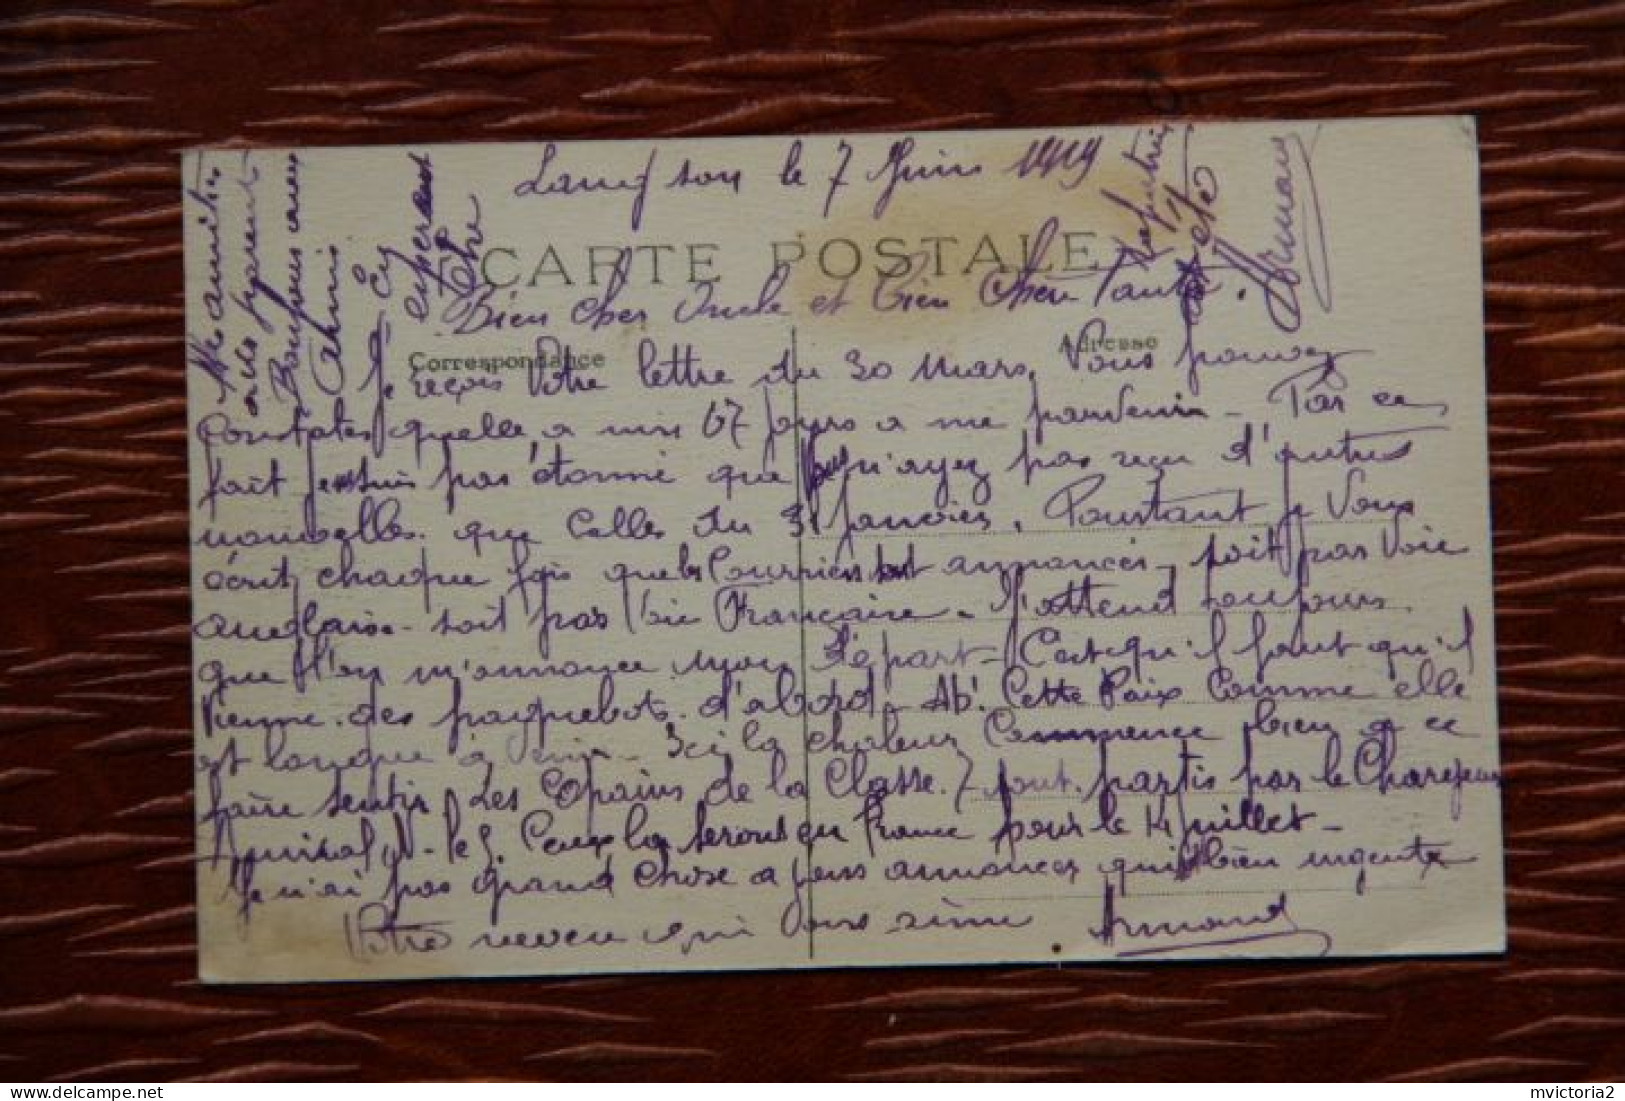 Lang son le 7 Juin 1919
CARTE POSTALE
Bien cher Oncle et bien chère Tante.
Correspondance
Adresse
Je reçois Votre lettre du 30 Mars. Vous pouvez
Constater quelle a mis 67 jours a me parvenir - Par ce
fait je suis pas étonné que Vous n'ayez pas reçu d'autres
nouvelles que Celles du 31 Janvier. Pourtant je Vous
écrit chaque fois que les Courriers sont annoncés - soit par Voie
anglaise - soit par Voie Française - J'attend toujours
que l'on m'annonce mon Départ - C'est qu'il faut qu'il
Vienne des paquebots d'abord - Ah! Cette Paix Comme elle
est longue à venir - Ici la chaleur Commence bien a ce
faire sentir. Les Copains de la Classe 7 sont partis par le Chargeurs
Amiral N - le 5. Ceux la seront en France pour le 14 Juillet -
Je n'ai pas grand Chose a vous annoncer qui soit bien urgente
Votre neveu qui Vous aime Armand
Mes amitiés
Bonjour aux
Amis
En
esperant
être
Rapatrié
Armand
mvictoria2